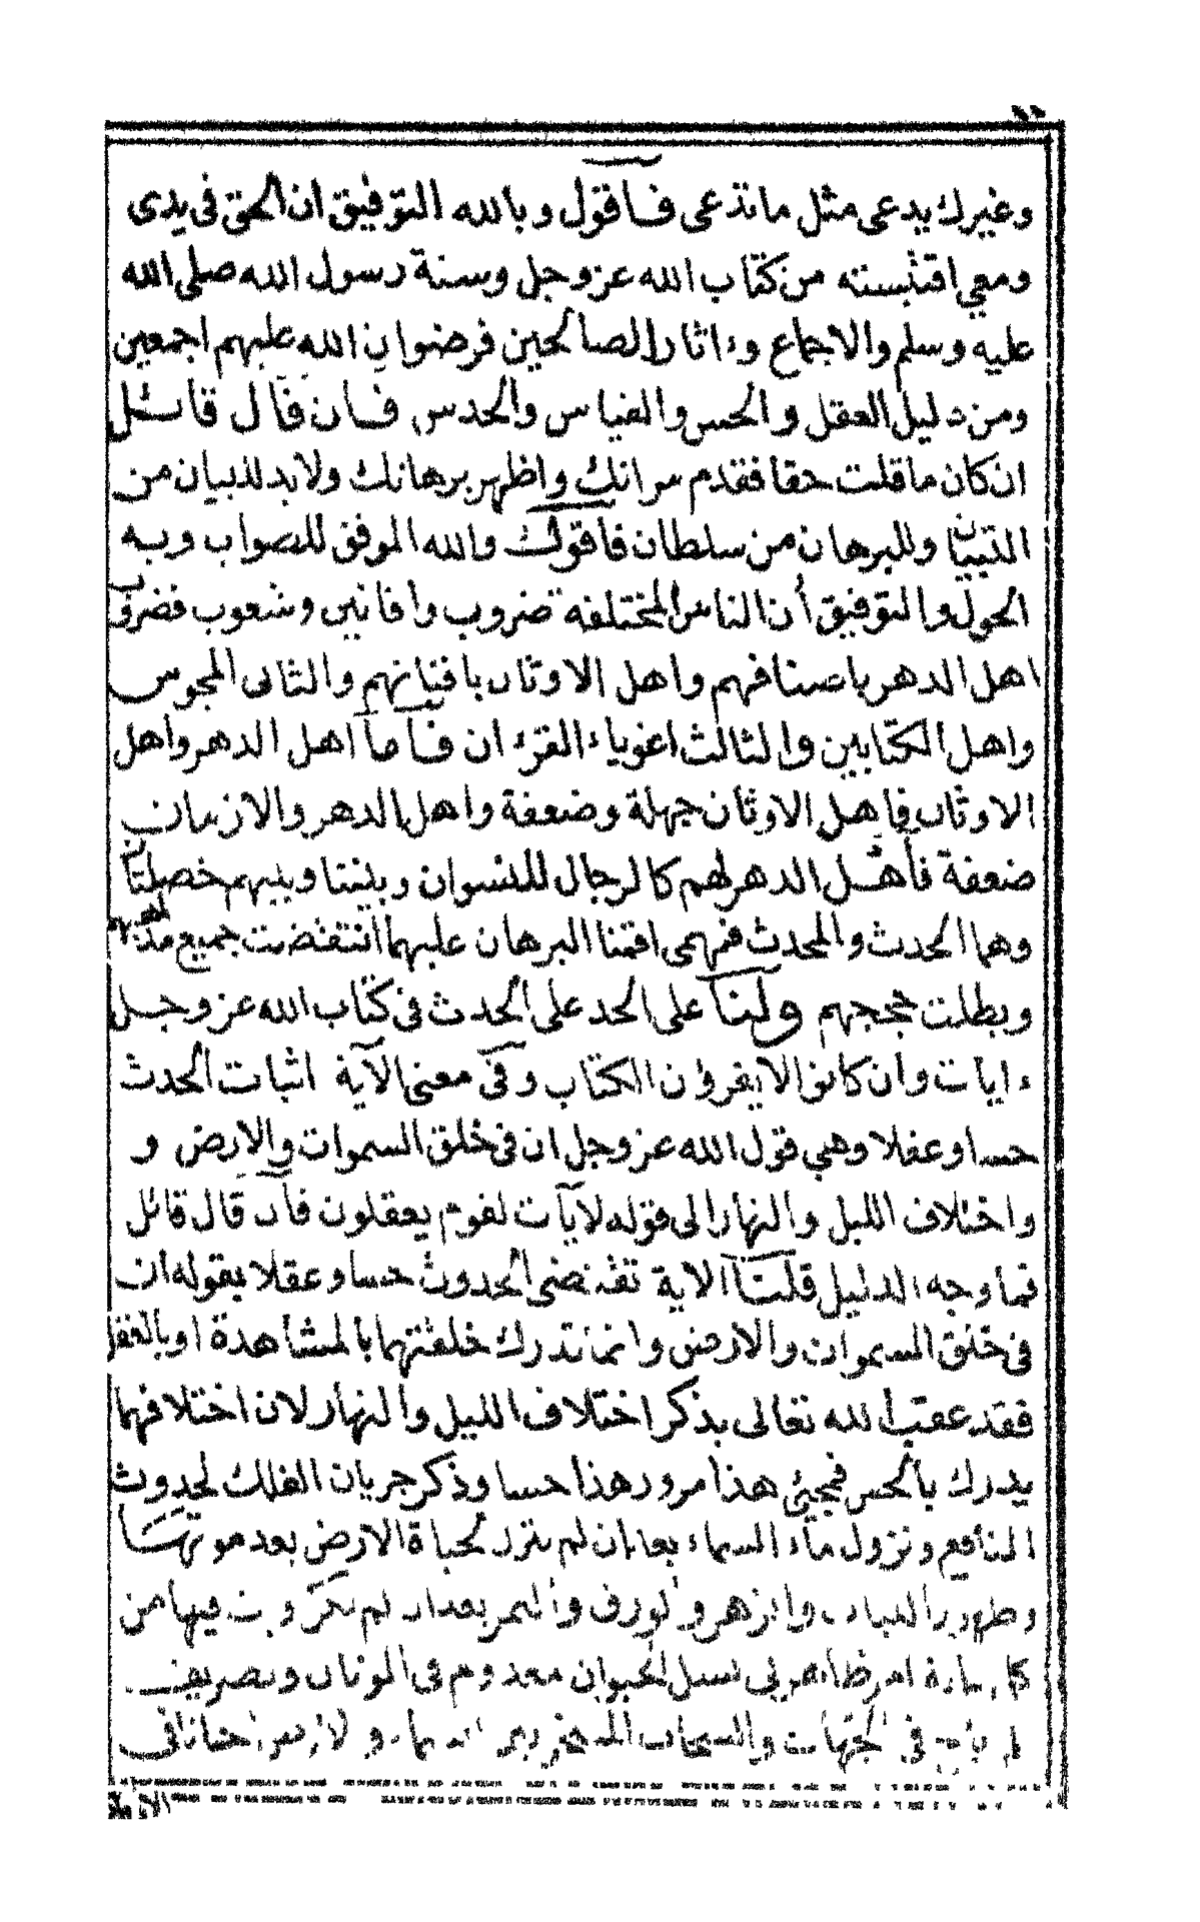 وغيرك يدعى مثل ما تدعى فاقول وبالله التوفيق ان الحق فى يدى
ومعي اقتبسته من كتاب الله عز وجل وسنة رسول الله صلى الله
عليه وسلم والاجماع وءاثار الصالحين فرضوان الله عليهم اجمعين
ومن دليل العقل والحس والقياس والحدس فان قال قائل
ان كان ما قلت حقا فقدم سرانك واظهر برهانك ولا بد للبيان من
التبيان وللبرهان من سلطان فاقول لك والله الموفق للصواب وبه
الحول والتوفيق أن الناس المختلفة ضروب وأفانين وشعوب فضرب
اهل الدهر باصنافهم واهل الاوثان بافتانهم والثانى المجوس
واهل الكتابين والثالث اغوياء القرءان فأما اهل الدهر واهل
الاوثان فاهل الاوثان جهلة وضعفة واهل الدهر والازمان
ضعفة فأهل الدهر لهم كالرجال للنسوان وبيننا وبينهم خصلتان
وهما الحدث والمحدث فمهمى اقمنا البرهان عليهما انتقضت جميع مذاهبهم
وبطلت حججهم ولنا على الحد على الحدث فى كتاب الله عز وجل
ءايات وان كانوا لا يقرؤن الكتاب وفى معنى الآية اثبات الحدث
حسا وعقلا وهي قول الله عز وجل ان فى خلق السموات والارض و
واختلاف الليل والنهار الى قوله لآيات لقوم يعقلون فان قال قائل
فما وجه الدليل قلنا الاية تقتضى الحدوث حسا وعقلا بقوله ان
فى خلق السموات والارض وانما تدرك خلقتهما بالمشاهدة او بالعقل
فقد عقب الله تعالى بذكر اختلاف الليل والنهار لان اختلافهما
يدرك بالحس فمجئى هذا مرور هذا حسا وذكر جريان الفلك لحدوث
المنافع ونزول ماء السماء بعد ان لم ينزل لحياة الارض بعد موتها
وظهور النبات والزهر والورق والثمر بعد ان لم تكن وبث فيها من
كل دابة امر ظاهر فى نسل الحيوان معدوم فى الوثان وتصريف
الرياح فى الجهات والسحاب المسخر بين السماء والارض